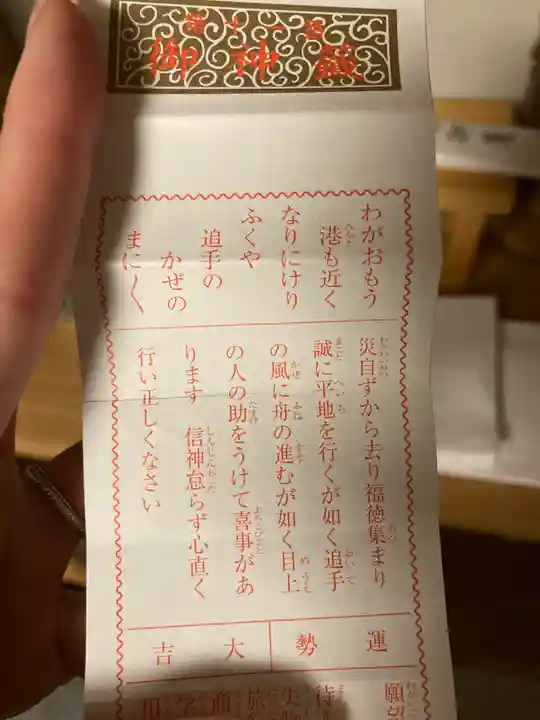 第十一番
御神籤
わがおもう
港も近く
なりにけり
ふくや
追手の
かぜの
まに〱
災自ずから去り福徳集まり
誠に平地を行くが如く追手
の風に舟の進むが如く目上
の人の助をうけて喜事があ
ります 信神怠らず心直く
行い正しくなさい
運勢
大吉
願望
待
失
旅
商
学